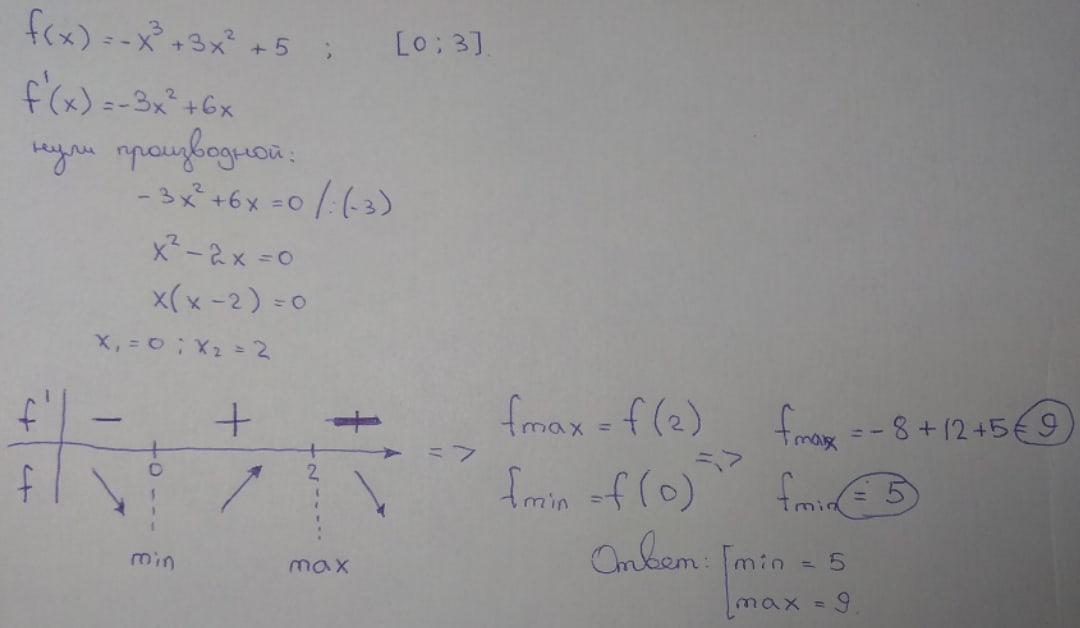 f(x) = -x³ + 3x² + 5 ; [0 ; 3].
f'(x) = -3x² + 6x
нули производной:
-3x² + 6x = 0 /:(-3)
x² - 2x = 0
x(x - 2) = 0
x₁ = 0 ; x₂ = 2
f' − + −
0 2 =>
f
min max
fmax = f(2)
fmin = f(0) =>
fmax = -8 + 12 + 5 = 9
fmin = 5
Ответ: [min = 5
max = 9.